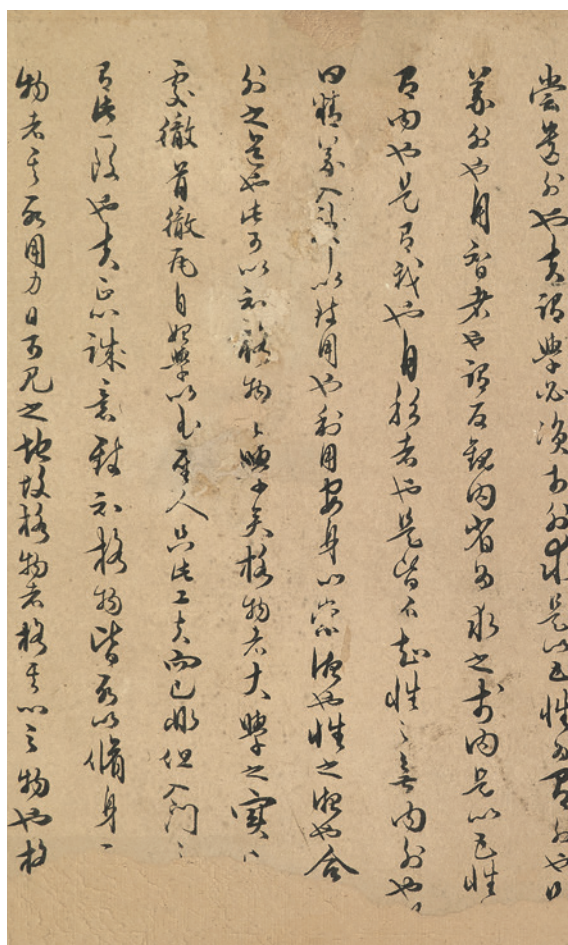 嘗遺外也夫謂學必資於外求是以己性為有外也
義外也用智者也謂反觀內省為求之於內是以己性
有內也是有我也自私者也是皆不知性之無內外也
曰精義入神以致用也利用安身以崇德也性之德也合
外之道也此可以知格物之學矣格物者大學之實下
處徹首徹尾自始學以至聖人只此工夫而已非但入門之
有此一段也夫正心誠意致知格物皆所以脩身
物者其所用力日可見之地故格物者格其心之物也格